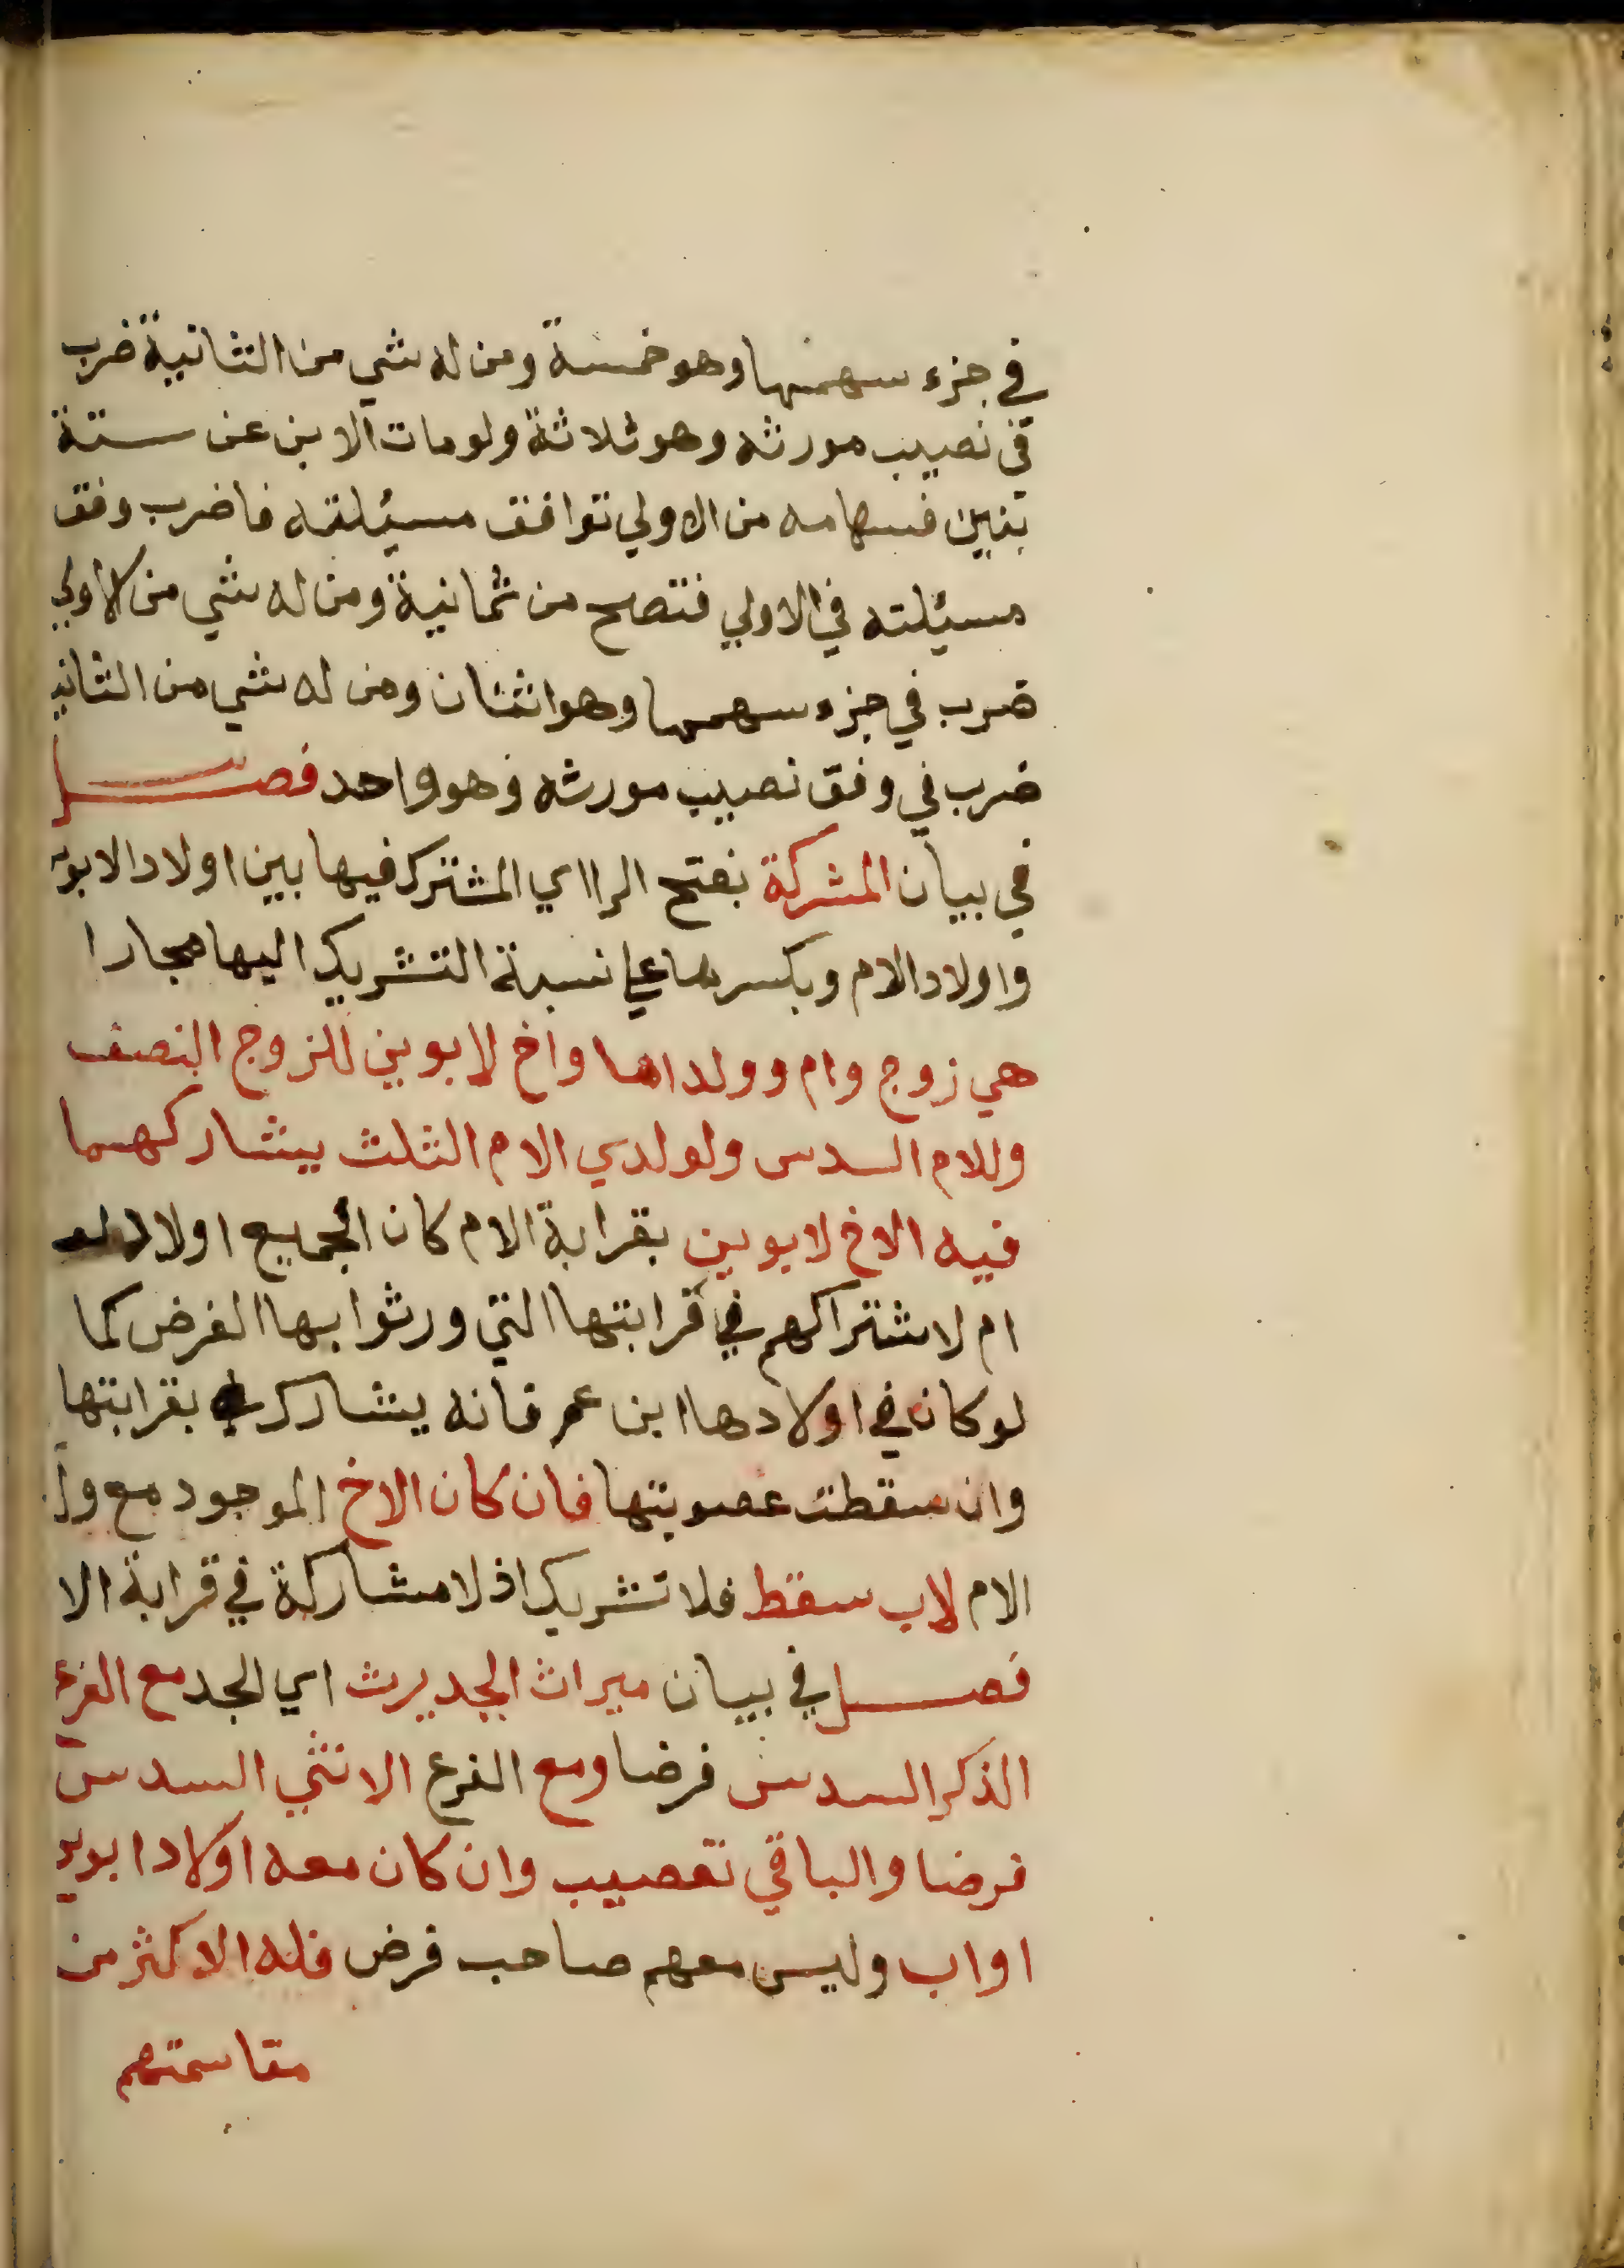 في جزء سهمها وهو خمسة ومن له شي من الثانية ضرب
في نصيب مورثه وهو ثلاثة ولو مات الابن عن ستة
بنين فسهامه من الاولي توافق مسيلته فاضرب وفق
مسيلته في الاولي فتصح من ثمانية ومن له شي من الاولي
ضرب في جزء سهمها وهو اثنان ومن له شي من الثاني
ضرب في وفق نصيب مورثه وهو واحد فصل
في بيان المشركة بفتح الرا اي المشترك فيها بين اولاد الابو
واولاد الام وبكسرها علي نسبة التشريك اليها مجازا
هي زوج وام وولداها واخ لابوين للزوج النصف
وللام السدس ولولدي الام الثلث يشاركهما
فيه الاخ لابوين بقرابة الام كان الجميع اولاد
ام لاشتراكهم في قرابتها التي ورثوا بها الفرض كما
لو كان في اولادها ابن عم فانه يشارك بقرابتها
وان سقطت عصوبتها فان كان الاخ الموجود مع ول
الام لاب سقط فلا تشريك اذ لا مشاركة في قرابة الا
فصل في بيان ميراث الجد يرث اي الجد مع الفرع
الذكر السدس فرضا ومع الفرع الانثي السدس
فرضا والباقي تعصيب وان كان معه اولاد ابوي
او اب وليس معهم صاحب فرض فله الاكثر من
مقاسمتهم